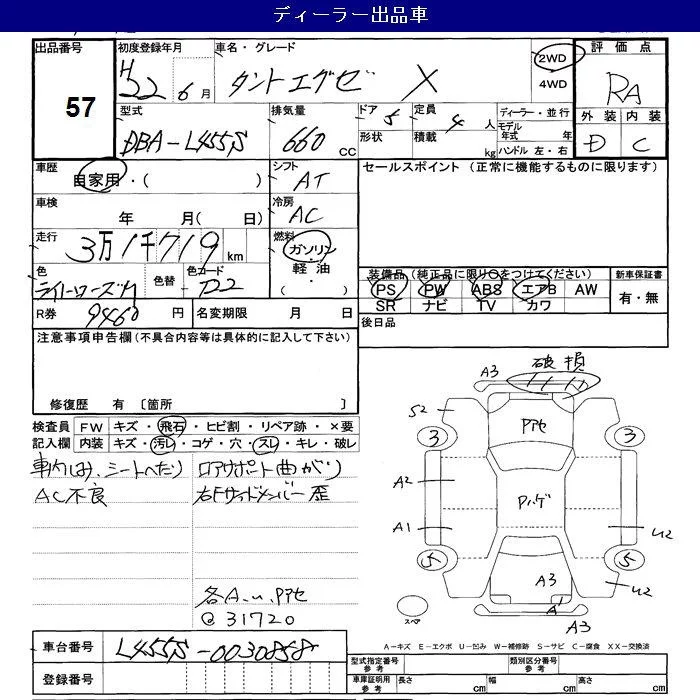 ディーラー出品車
出品番号
57
初度登録年月
H22年 6月
車名・グレード
タントエグゼ X
2WD
4WD
評価点
RA
外装 内装
D C
型式
DBA-L455S
排気量
660 cc
ドア 5
定員 4人
形状
積載 kg
ディーラー・並行
モデル年式 年
ハンドル 左・右
車歴
自家用・( )
シフト
AT
セールスポイント (正常に機能するものに限ります)
車検
年 月( 日)
冷房
AC
走行
3万1千719km
燃料
ガソリン
軽油
・( )
色
色替
色コード
R券
9460円
名変期限 月 日
装備品(純正品に限り○をつけてください)
PS PW ABS エアB AW
SR ナビ TV カワ
新車保証書
有・無
後日品
注意事項申告欄(不具合内容等は具体的に記入して下さい)
修復歴 有 〔箇所 〕
検査員記入欄
FW キズ・飛石・ヒビ割・リペア跡・×要
内装 キズ・汚レ・コゲ・穴・スレ・キレ・破レ
車内しみ、シートへたり
AC不良
ロアサポート曲がり
右Fサイドメンバー歪
各A.u.Pアセ
@31720
破損
A3
S2
3
3
Pアセ
A2
Pハゲ
A1
U2
5
5
U2
A3
A1
A3
スペア
A-キズ E-エクボ U-凹み W-補修跡 S-サビ C-腐食 XX-交換済
車台番号
L455S-0030858
登録番号
型式指定番号 参考
類別区分番号 参考
車庫証明用 参考
長さ cm
幅 cm
高さ cm